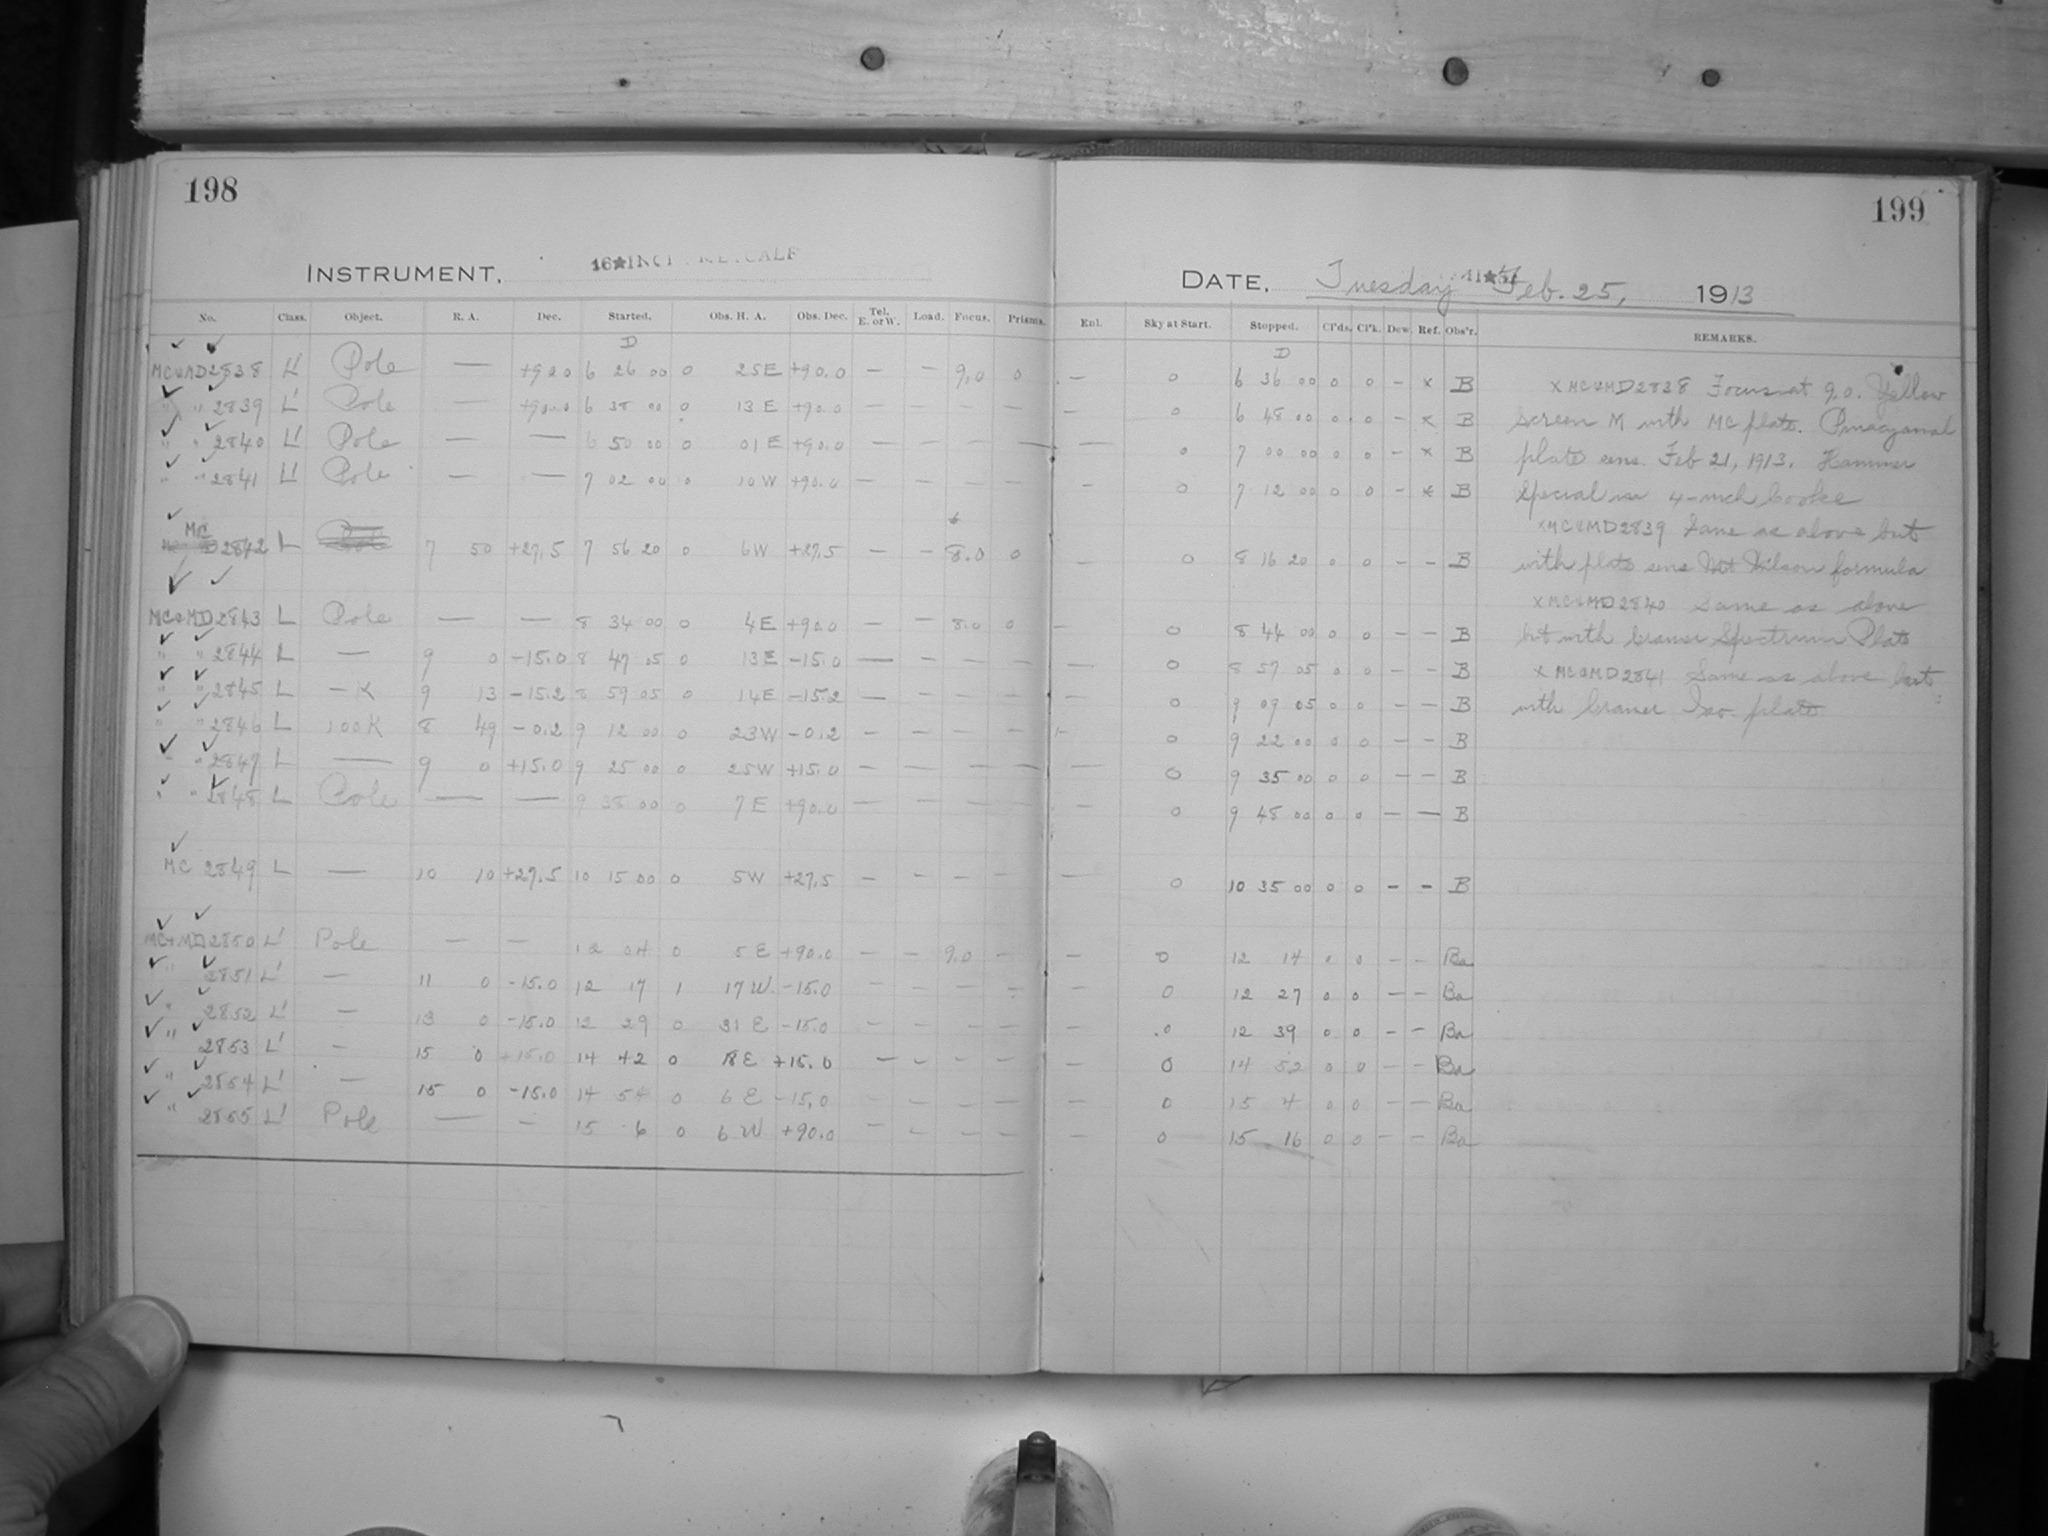 198
199
INSTRUMENT,
DATE, Tuesday Feb. 25, 1913
No. Class. Object. R. A. Dec. Started. Obs. H. A. Obs. Dec. Tel. E. or W. Load. Focus. Prisms. Enl. Sky at Start. Stopped. Cl'ds. Cl'k. Dew. Ref. Obs'r. REMARKS.
D D
MC & MD 2838 L' Pole — +90.0 6 26 00 0 25 E +90.0 — — 9.0 0 — 0 6 36 00 0 0 — x B
" " 2839 L' Pole — +90.0 6 38 00 0 13 E +90.0 — — — — — 0 6 48 00 0 0 — x B
" " 2840 L' Pole — — 6 50 00 0 01 E +90.0 — — — — — 0 7 00 00 0 0 — x B
" " 2841 L' Pole — — 7 02 00 0 10 W +90.0 — — — — — 0 7 12 00 0 0 — x B
MC 2842 L 7 50 +27.5 7 56 20 0 6 W +27.5 — — 8.0 0 — 0 8 16 20 0 0 — — B
MC & MD 2843 L Pole — — 8 34 00 0 4 E +90.0 — — 8.0 0 — 0 8 44 00 0 0 — — B
" " 2844 L — 9 0 -15.0 8 47 05 0 13 E -15.0 — — — — — 0 8 57 05 0 0 — — B
" " 2845 L — K 9 13 -15.2 8 59 05 0 14 E -15.2 — — — — — 0 9 09 05 0 0 — — B
" " 2846 L 100 K 8 49 -0.2 9 12 00 0 23 W -0.2 — — — — — 0 9 22 00 0 0 — — B
" " 2847 L — 9 0 +15.0 9 25 00 0 25 W +15.0 — — — — — 0 9 35 00 0 0 — — B
" " 2848 L Pole — — 9 38 00 0 7 E +90.0 — — — — — 0 9 48 00 0 0 — — B
MC 2849 L — 10 10 +27.5 10 15 00 0 5 W +27.5 — — — — — 0 10 35 00 0 0 — — B
MC + MD 2850 L' Pole — — 12 04 0 5 E +90.0 — — 9.0 — — 0 12 14 0 0 — — Ba
" 2851 L' — 11 0 -15.0 12 17 1 17 W -15.0 — — — — — 0 12 27 0 0 — — Ba
" 2852 L' — 13 0 -15.0 12 29 0 31 E -15.0 — — — — — 0 12 39 0 0 — — Ba
" 2853 L' — 15 0 +15.0 14 42 0 18 E +15.0 — — — — — 0 14 52 0 0 — — Ba
" 2854 L' — 15 0 -15.0 14 54 0 6 E -15.0 — — — — — 0 15 4 0 0 — — Ba
" 2855 L' Pole — — 15 6 0 6 W +90.0 — — — — — 0 15 16 0 0 — — Ba
x MC & MD 2838 Focus at 9.0. Yellow
screen M with MC plate. Pinacyanol
plate sens. Feb 21, 1913. Hammer
Special in 4-inch Cooke
x MC & MD 2839 Same as above but
with plate sens Mt Wilson formula
x MC & MD 2840 Same as above
but with Cramer Spectrum Plate
x MC & MD 2841 Same as above but
with Cramer Iso. plate